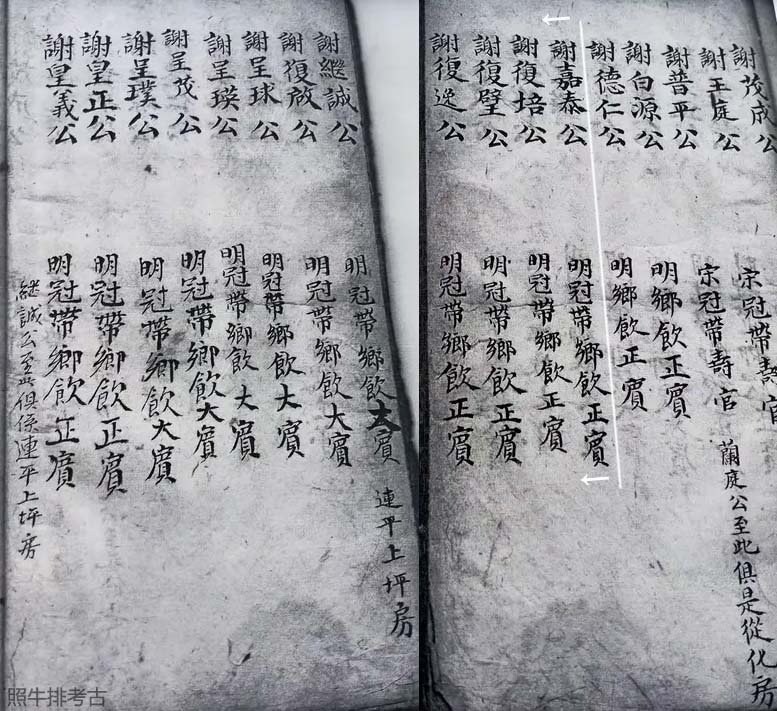 謝茂成公
謝王庭公
宋冠帶壽官
謝普平公
宋冠帶壽官
蘭庭公至此俱是從化房
謝白源公
明鄉飲正賓
謝德仁公
明鄉飲正賓
謝嘉泰公
明冠帶鄉飲正賓
謝復培公
明冠帶鄉飲正賓
謝復璧公
明冠帶鄉飲正賓
謝復逸公
明冠帶鄉飲正賓
謝繼誠公
明冠帶鄉飲大賓
連平上坪房
謝復啟公
明冠帶鄉飲大賓
謝呈球公
明冠帶鄉飲大賓
謝呈瑛公
明冠帶鄉飲大賓
謝呈茂公
明冠帶鄉飲大賓
謝呈璞公
明冠帶鄉飲大賓
謝皇正公
明冠帶鄉飲正賓
謝皇義公
明冠帶鄉飲正賓
继誠公至此俱係連平上坪房
照牛排考古